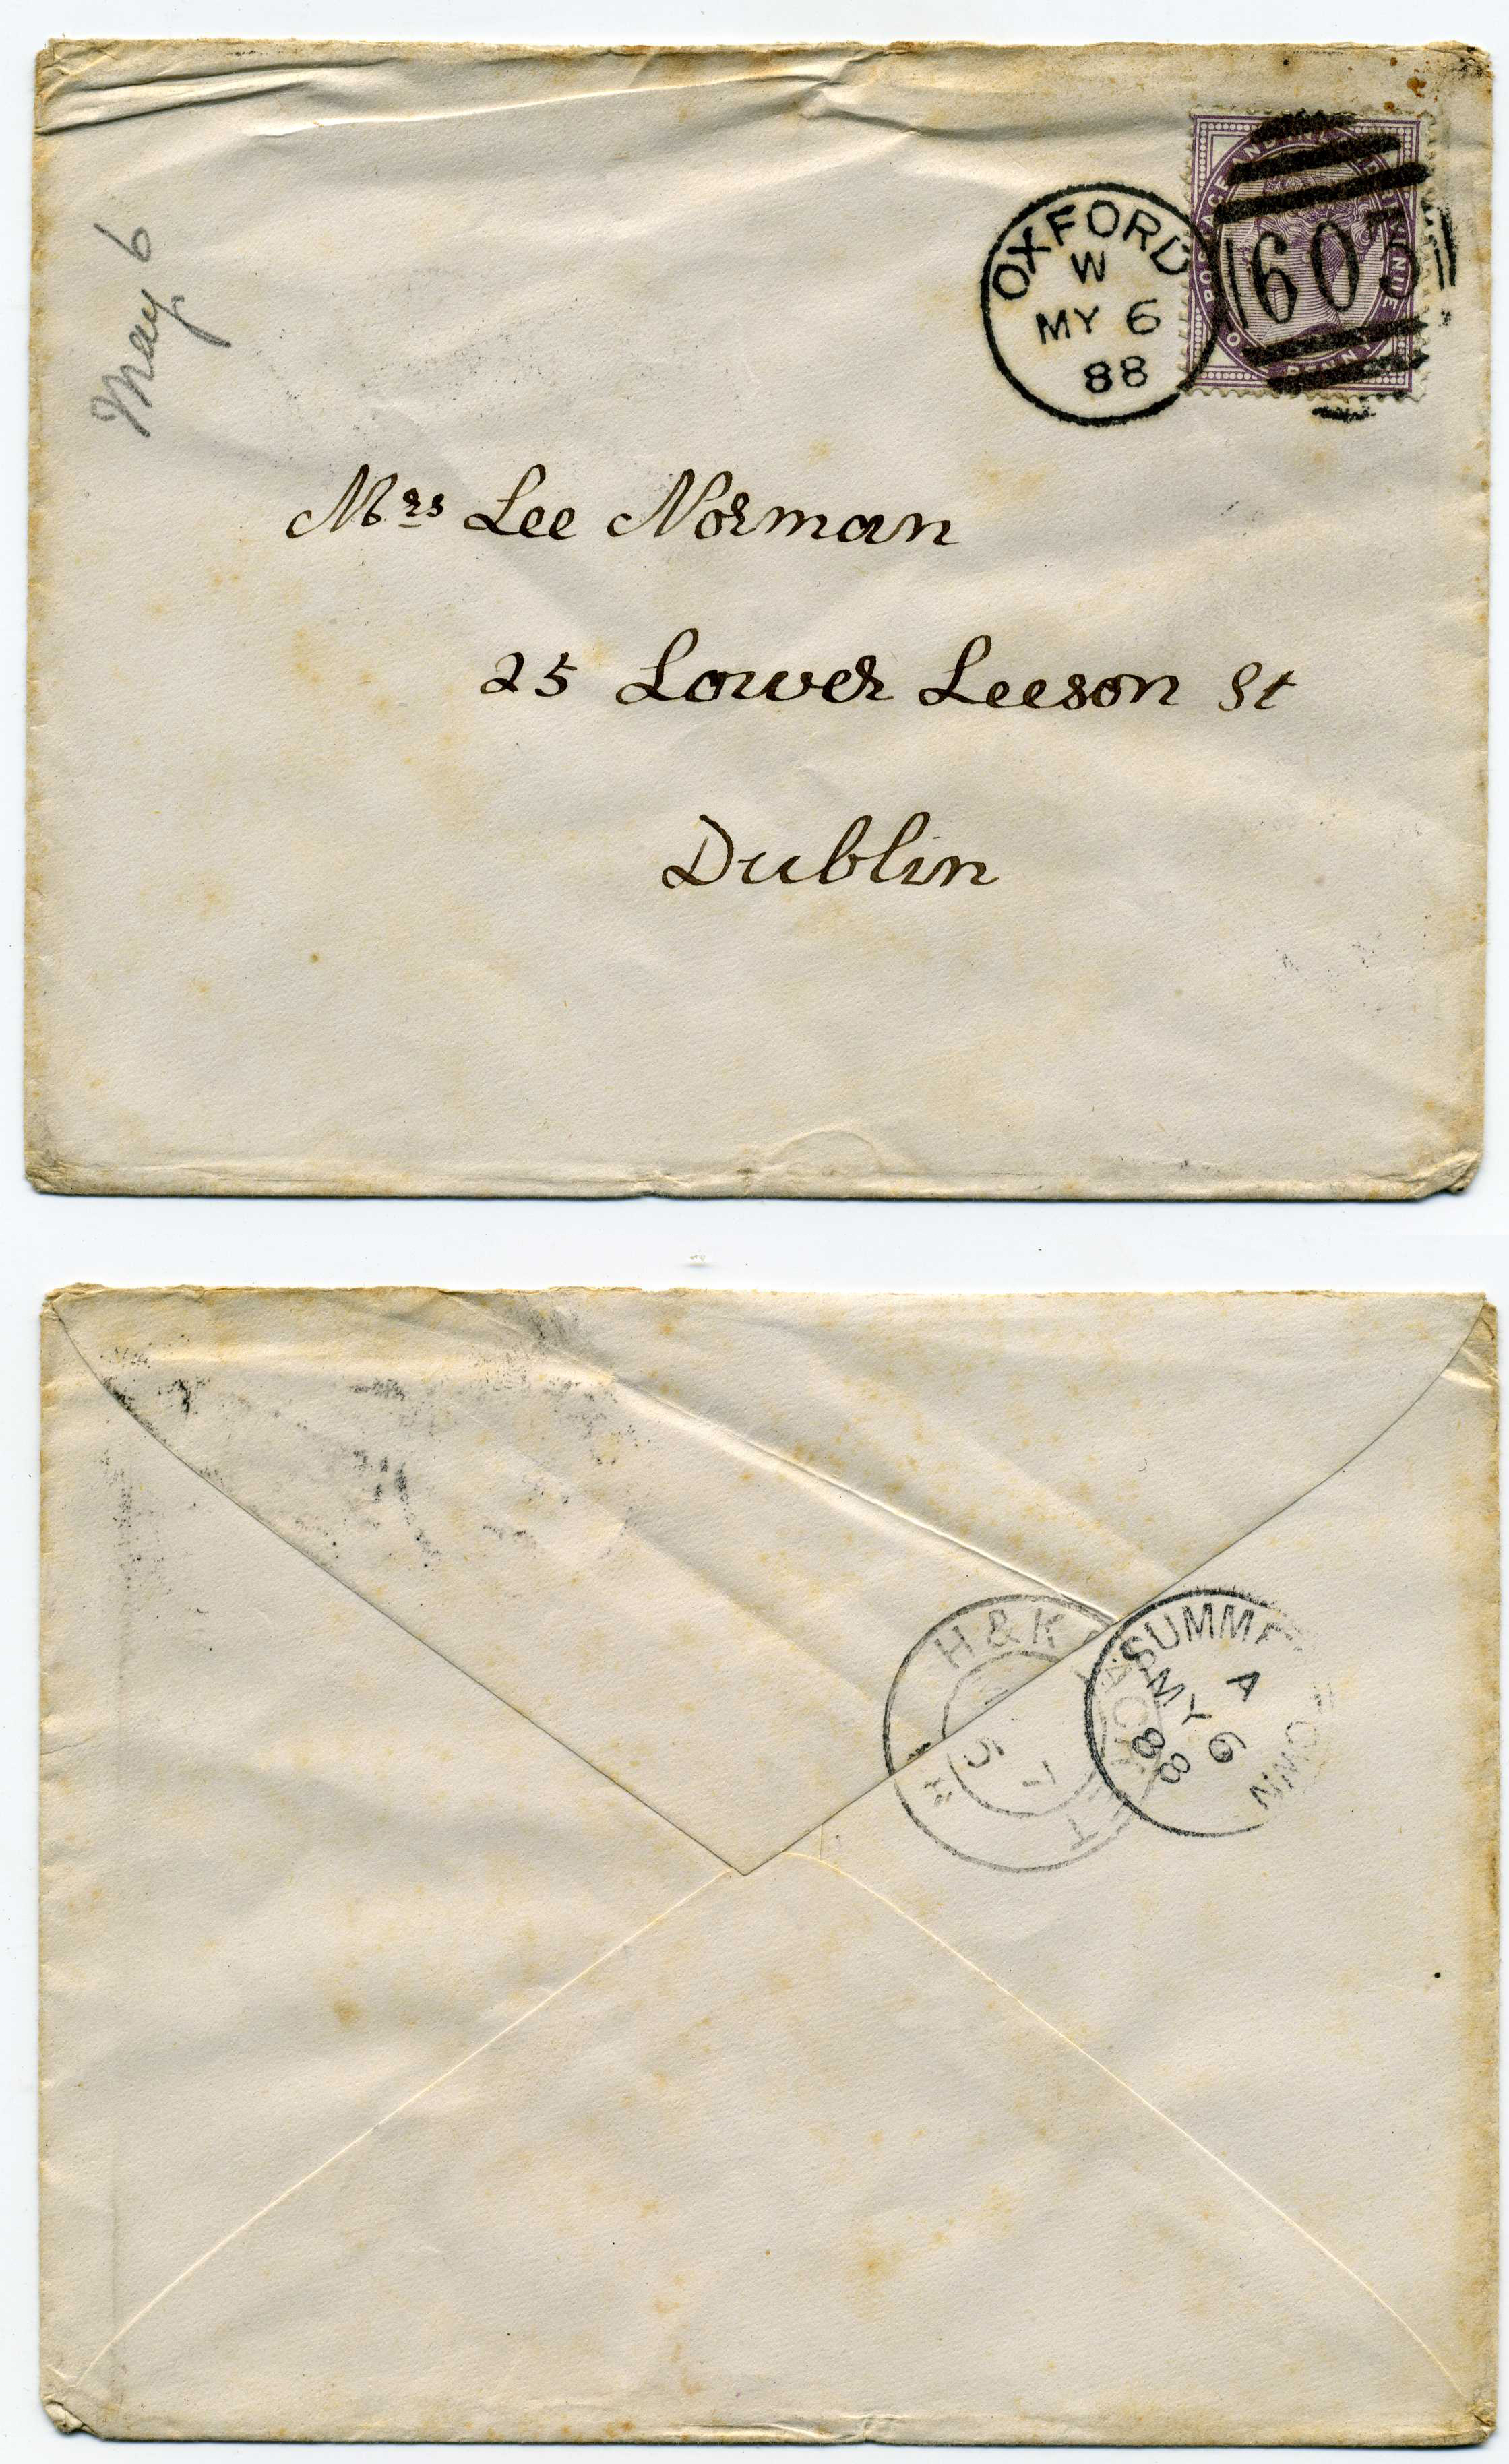 May 6
OXFORD
W
MY 6
88
POSTAGE AND INLAND REVENUE
ONE PENNY
603
Mrs Lee Norman
25 Lower Leeson St
Dublin
H & K PACKET
7
5
SUMMERTOWN
A
MY 6
88